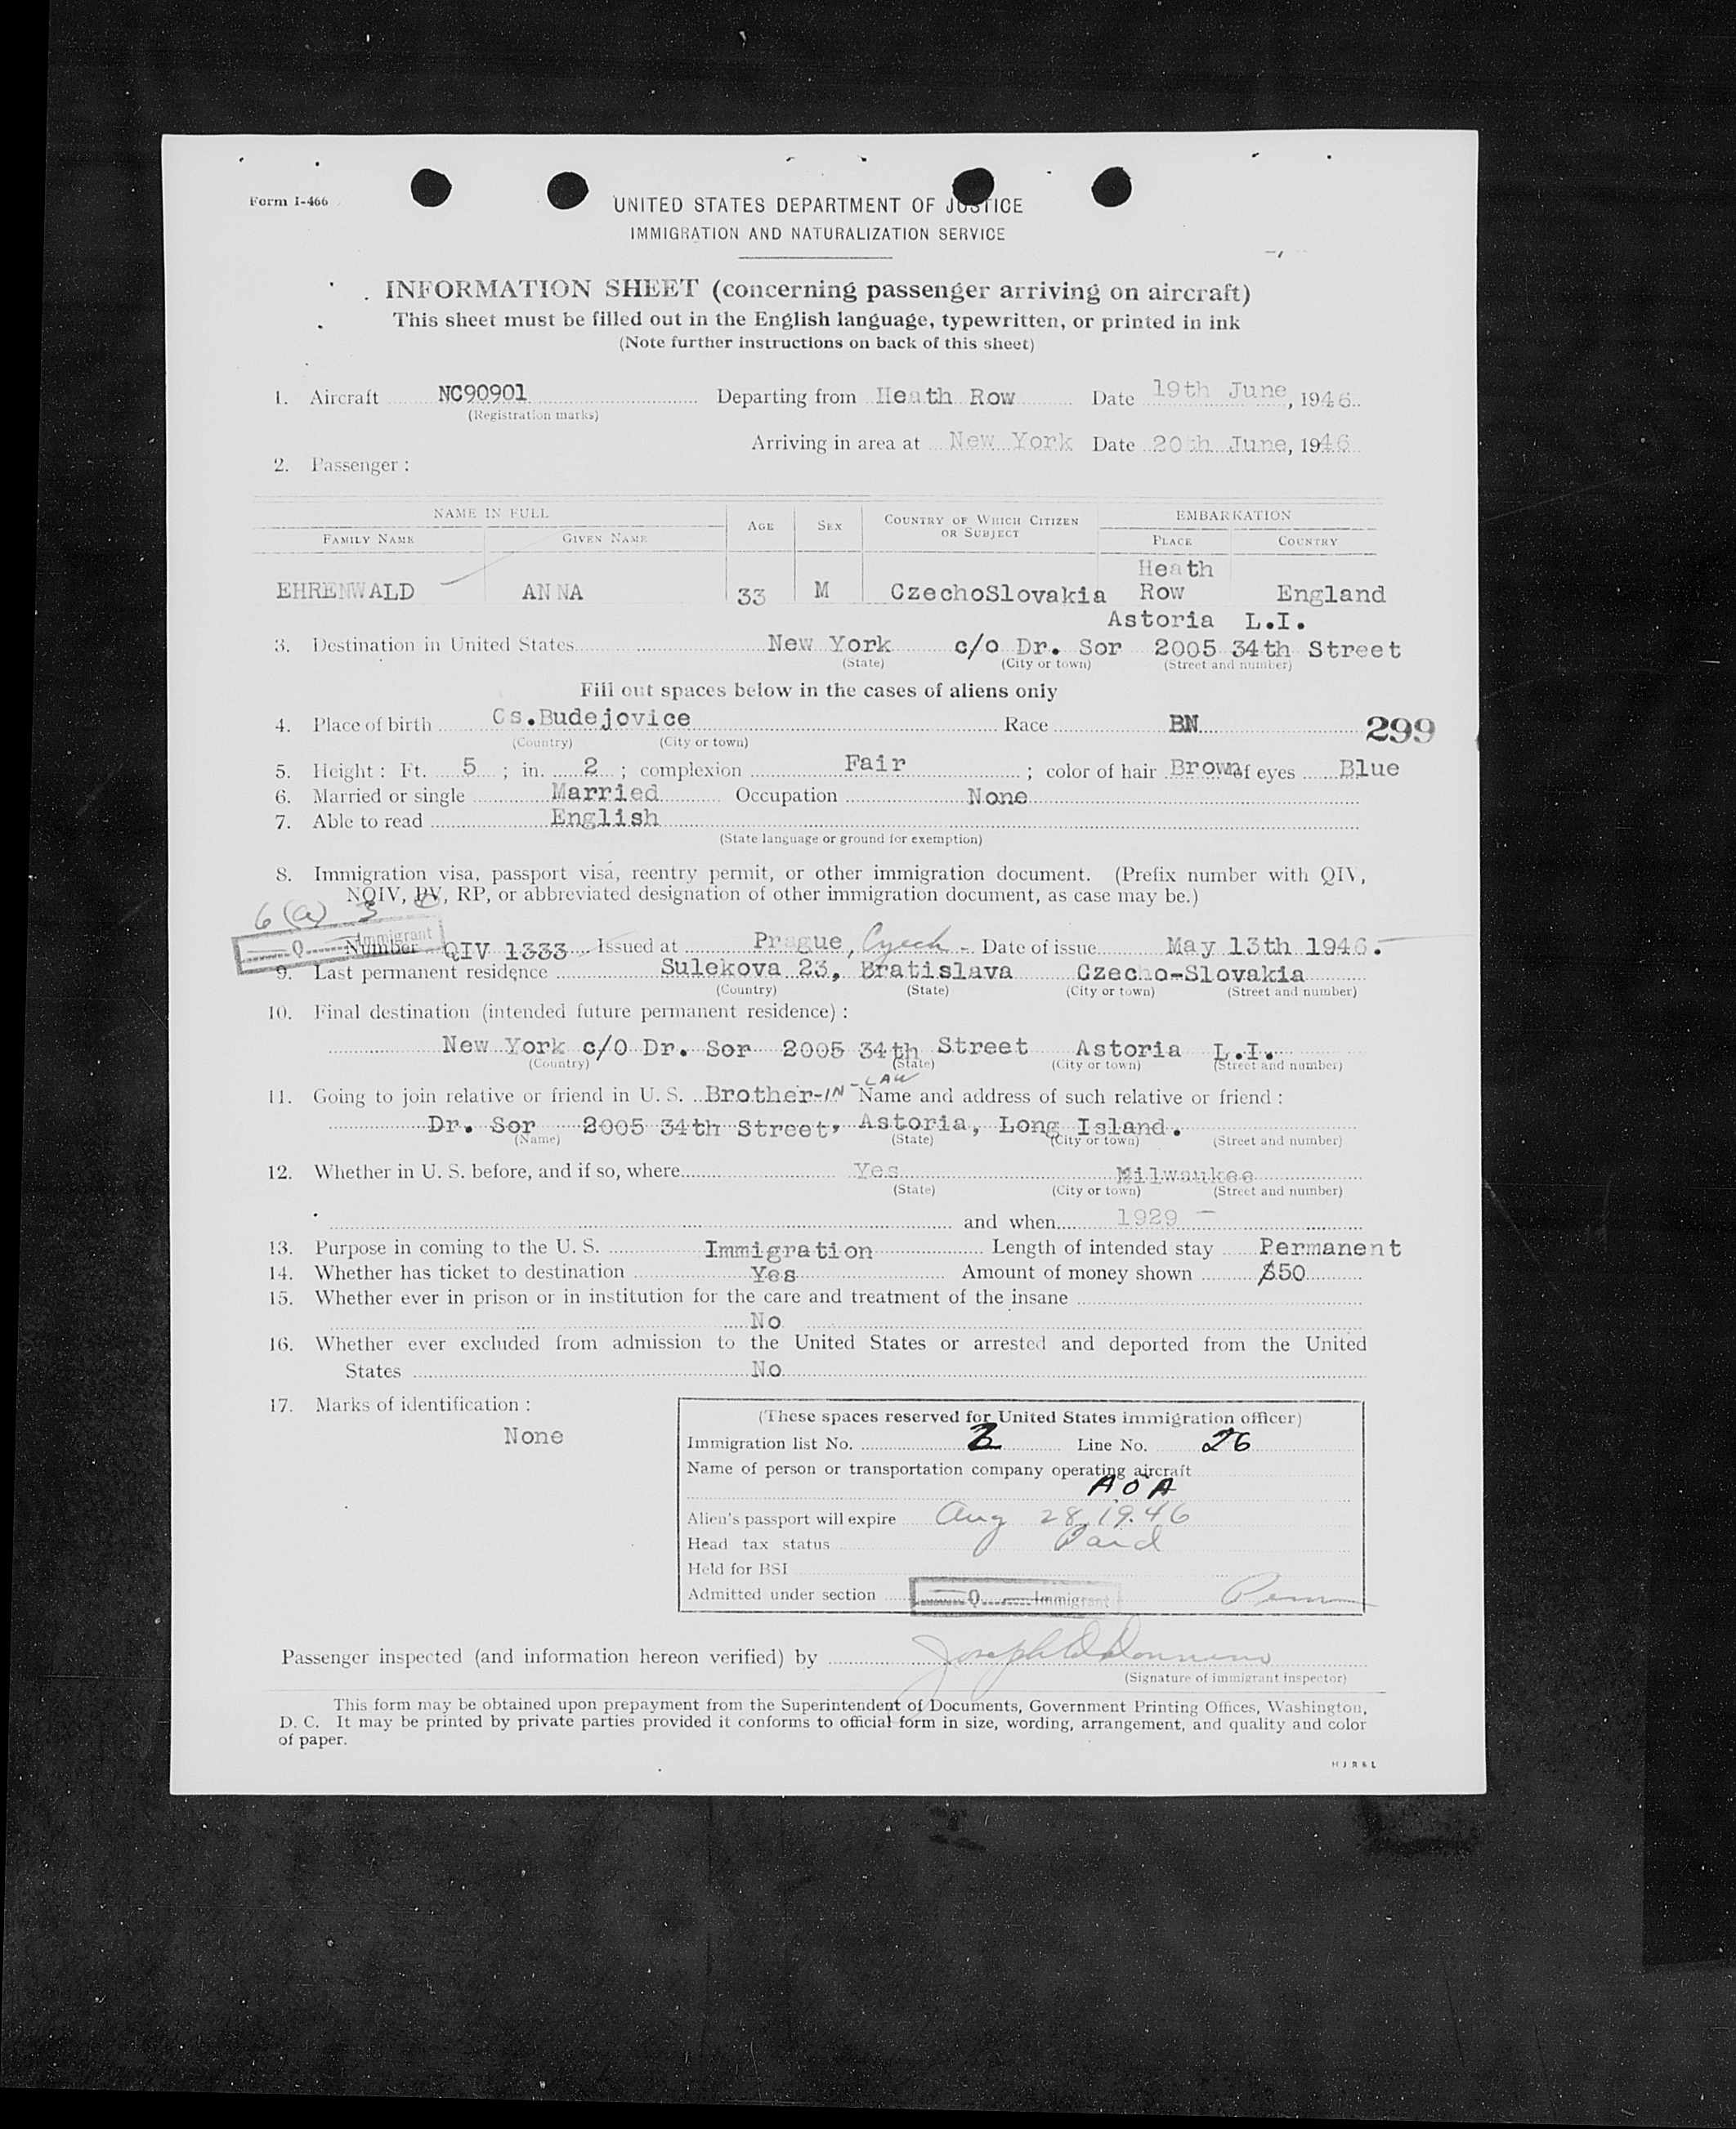 Form I-466
UNITED STATES DEPARTMENT OF JUSTICE
IMMIGRATION AND NATURALIZATION SERVICE
INFORMATION SHEET (concerning passenger arriving on aircraft)
This sheet must be filled out in the English language, typewritten, or printed in ink
(Note further instructions on back of this sheet)
1. Aircraft NC90901 Departing from Heath Row Date 19th June, 1946
(Registration marks)
Arriving in area at New York Date 20th June, 1946
2. Passenger:
NAME IN FULL AGE SEX COUNTRY OF WHICH CITIZEN OR SUBJECT EMBARKATION
FAMILY NAME GIVEN NAME PLACE COUNTRY
Heath
EHRENWALD ANNA 33 M CzechoSlovakia Row England
Astoria L.I.
3. Destination in United States New York c/o Dr. Sor 2005 34th Street
(State) (City or town) (Street and number)
Fill out spaces below in the cases of aliens only
4. Place of birth Cs.Budejovice Race BN 299
(Country) (City or town)
5. Height: Ft. 5 ; in. 2 ; complexion Fair ; color of hair Brown of eyes Blue
6. Married or single Married Occupation None
7. Able to read English
(State language or ground for exemption)
8. Immigration visa, passport visa, reentry permit, or other immigration document. (Prefix number with QIV,
NQIV, PV, RP, or abbreviated designation of other immigration document, as case may be.)
6 (a) 3
Q Immigrant
Number QIV 1333 Issued at Prague, Czech - Date of issue May 13th 1946.
9. Last permanent residence Sulekova 23, Bratislava Czecho-Slovakia
(Country) (State) (City or town) (Street and number)
10. Final destination (intended future permanent residence):
New York c/O Dr. Sor 2005 34th Street Astoria L.I.
(Country) (State) (City or town) (Street and number)
11. Going to join relative or friend in U. S. Brother-IN-LAW Name and address of such relative or friend:
Dr. Sor 2005 34th Street, Astoria, Long Island.
(Name) (State) (City or town) (Street and number)
12. Whether in U. S. before, and if so, where Yes Milwaukee
(State) (City or town) (Street and number)
and when 1929 -
13. Purpose in coming to the U. S. Immigration Length of intended stay Permanent
14. Whether has ticket to destination Yes Amount of money shown $50
15. Whether ever in prison or in institution for the care and treatment of the insane
No
16. Whether ever excluded from admission to the United States or arrested and deported from the United
States No
17. Marks of identification:
None
(These spaces reserved for United States immigration officer)
Immigration list No. 2 Line No. 26
Name of person or transportation company operating aircraft
AOA
Alien's passport will expire Aug 28, 1946
Head tax status Paid
Held for BSI
Admitted under section Q Immigrant Perm
Passenger inspected (and information hereon verified) by Joseph
(Signature of immigrant inspector)
This form may be obtained upon prepayment from the Superintendent of Documents, Government Printing Offices, Washington,
D. C. It may be printed by private parties provided it conforms to official form in size, wording, arrangement, and quality and color
of paper.